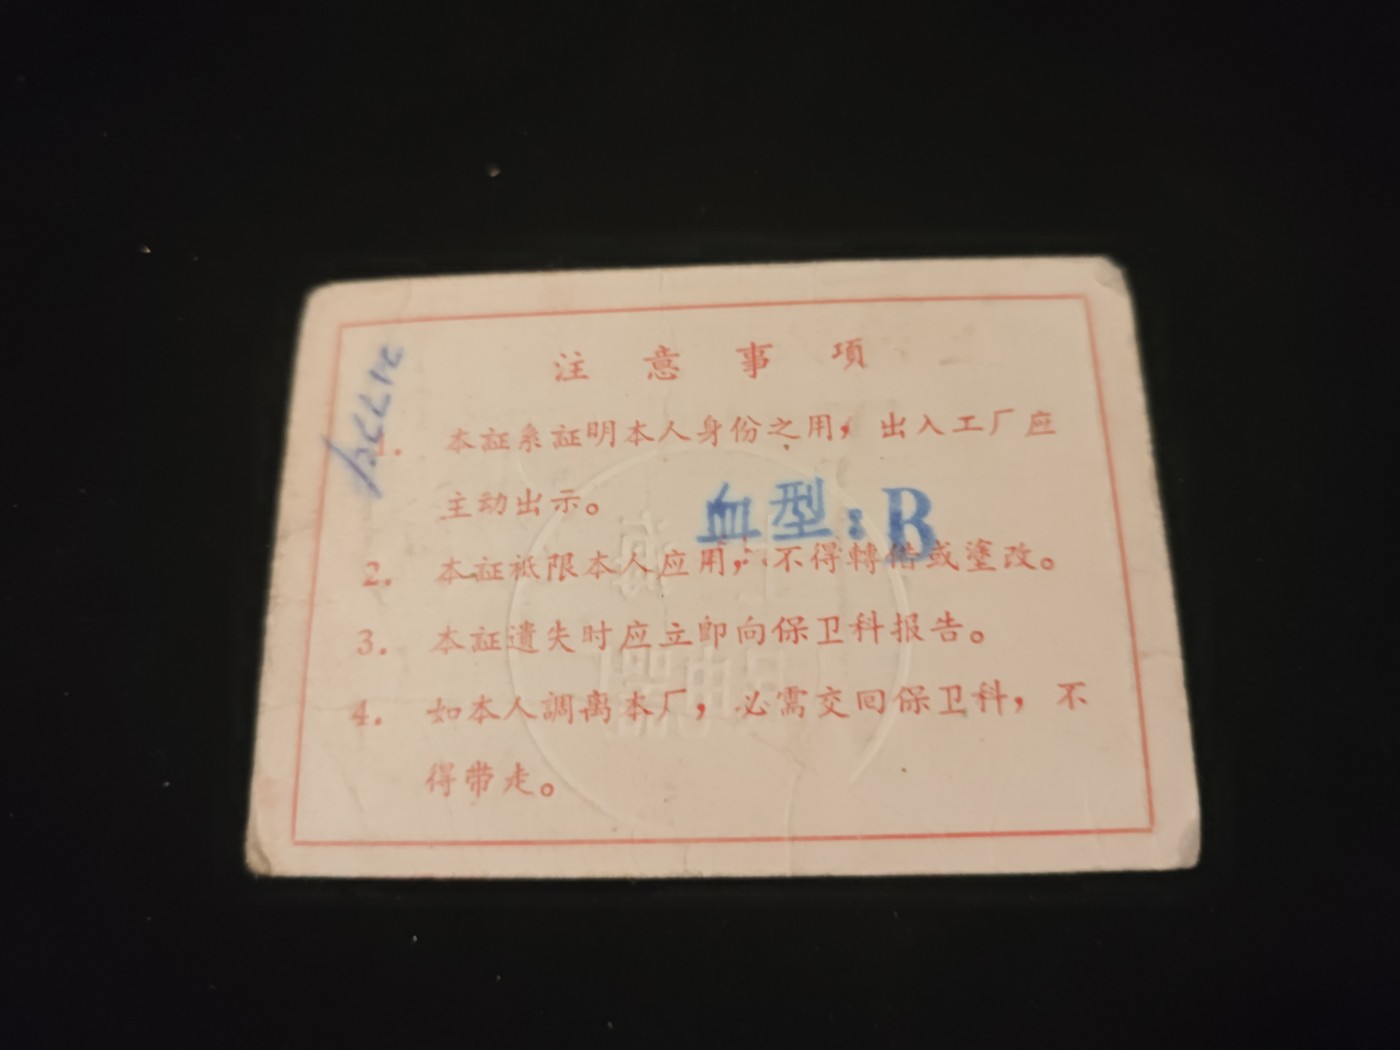 注意事項
1. 本証系証明本人身份之用，出入工厂应
主动出示。
血型:B
2. 本証祗限本人应用，不得轉借或塗改。
3. 本証遺失时应立即向保卫科报告。
4. 如本人調离本厂，必需交回保卫科，不
得带走。